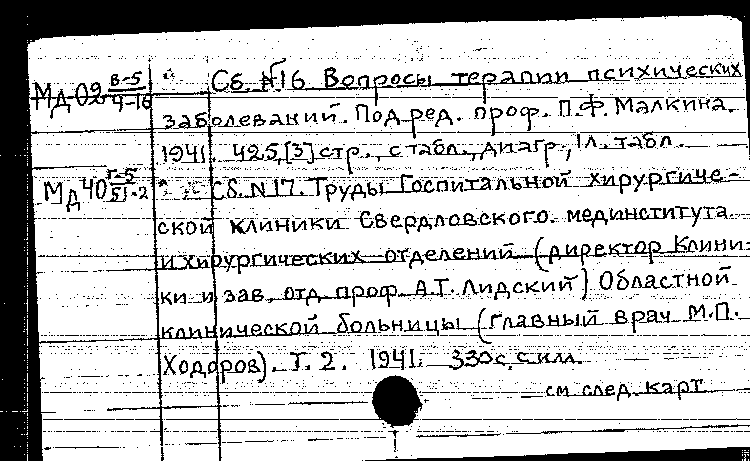 Мд02 8-5/4-16 Сб. №16 Вопросы терапии психических
заболеваний. Под ред. проф. П.Ф. Малкина.
1941. 425,[3] стр., с табл., диагр., 1 л. табл.
Мд40 г-5/51-2 Сб. N17. Труды Госпитальной хирургиче-
ской клиники Свердловского мединститута
и хирургических отделений (директор Клини-
ки и зав. отд. проф. А.Т. Лидский) Областной
клинической больницы (главный врач М.П.
Ходоров). Т. 2. 1941. 330 с. с илл.
см след. карт